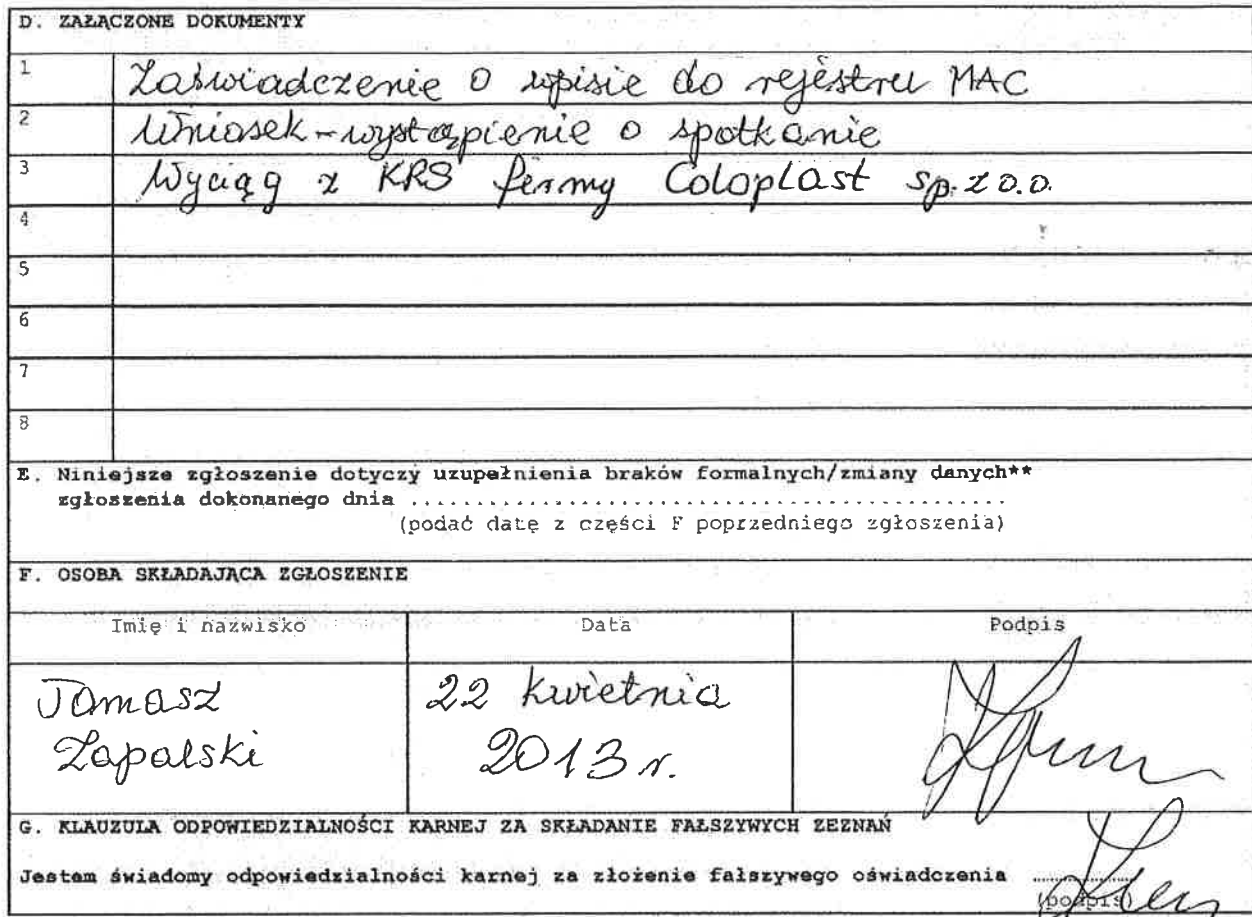 D. ZAŁĄCZONE DOKUMENTY
1 Zaświadczenie o wpisie do rejestru MAC
2 Wniosek - wystąpienie o spotkanie
3 Wyciąg z KRS firmy Coloplast sp. z o.o.
4
5
6
7
8
E. Niniejsze zgłoszenie dotyczy uzupełnienia braków formalnych/zmiany danych**
zgłoszenia dokonanego dnia ......................................................
(podać datę z części F poprzedniego zgłoszenia)
F. OSOBA SKŁADAJĄCA ZGŁOSZENIE
Imię i nazwisko Data Podpis
Tomasz 22 kwietnia
Zapalski 2013 r.
G. KLAUZULA ODPOWIEDZIALNOŚCI KARNEJ ZA SKŁADANIE FAŁSZYWYCH ZEZNAŃ
Jestem świadomy odpowiedzialności karnej za złożenie fałszywego oświadczenia ..........
(podpis)